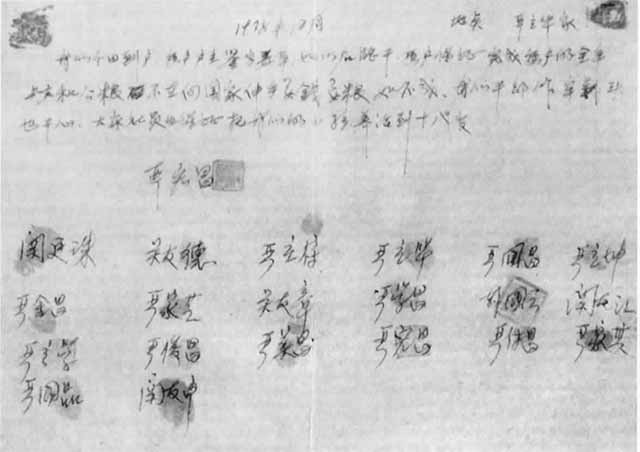 1978年12月 地点 严立华家
我们分田到户 每户户主签字盖章 如以后能干 每户保证完成每户的全年
上交和公粮 不在向国家伸手要钱要粮 如不成 我们干部作牢刹头
也干心 大家社员也保证把我们的小孩养活到十八岁
严宏昌
关廷珠 关友德 严立符 严立华 严国昌 严立坤
严金昌 严家芝 关友章 严学昌 韩国云 关友江
严立学 严俊昌 严美昌 严宏昌 严付昌 严家其
严国品 关友申